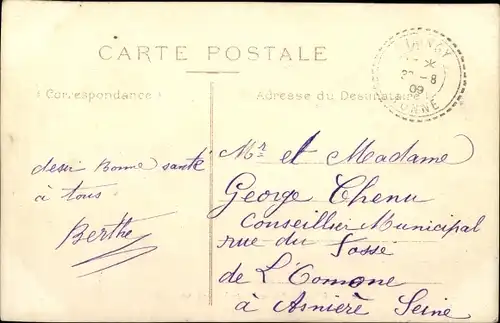 CARTE POSTALE
Correspondance
Adresse du Destinataire
* 
-8
09
YONNE
desir Bonne santé
à tous
Berthe
Mr et Madame
George Chenu
Conseiller Municipal
rue du Fossé
de L'Comone
à Asnière Seine